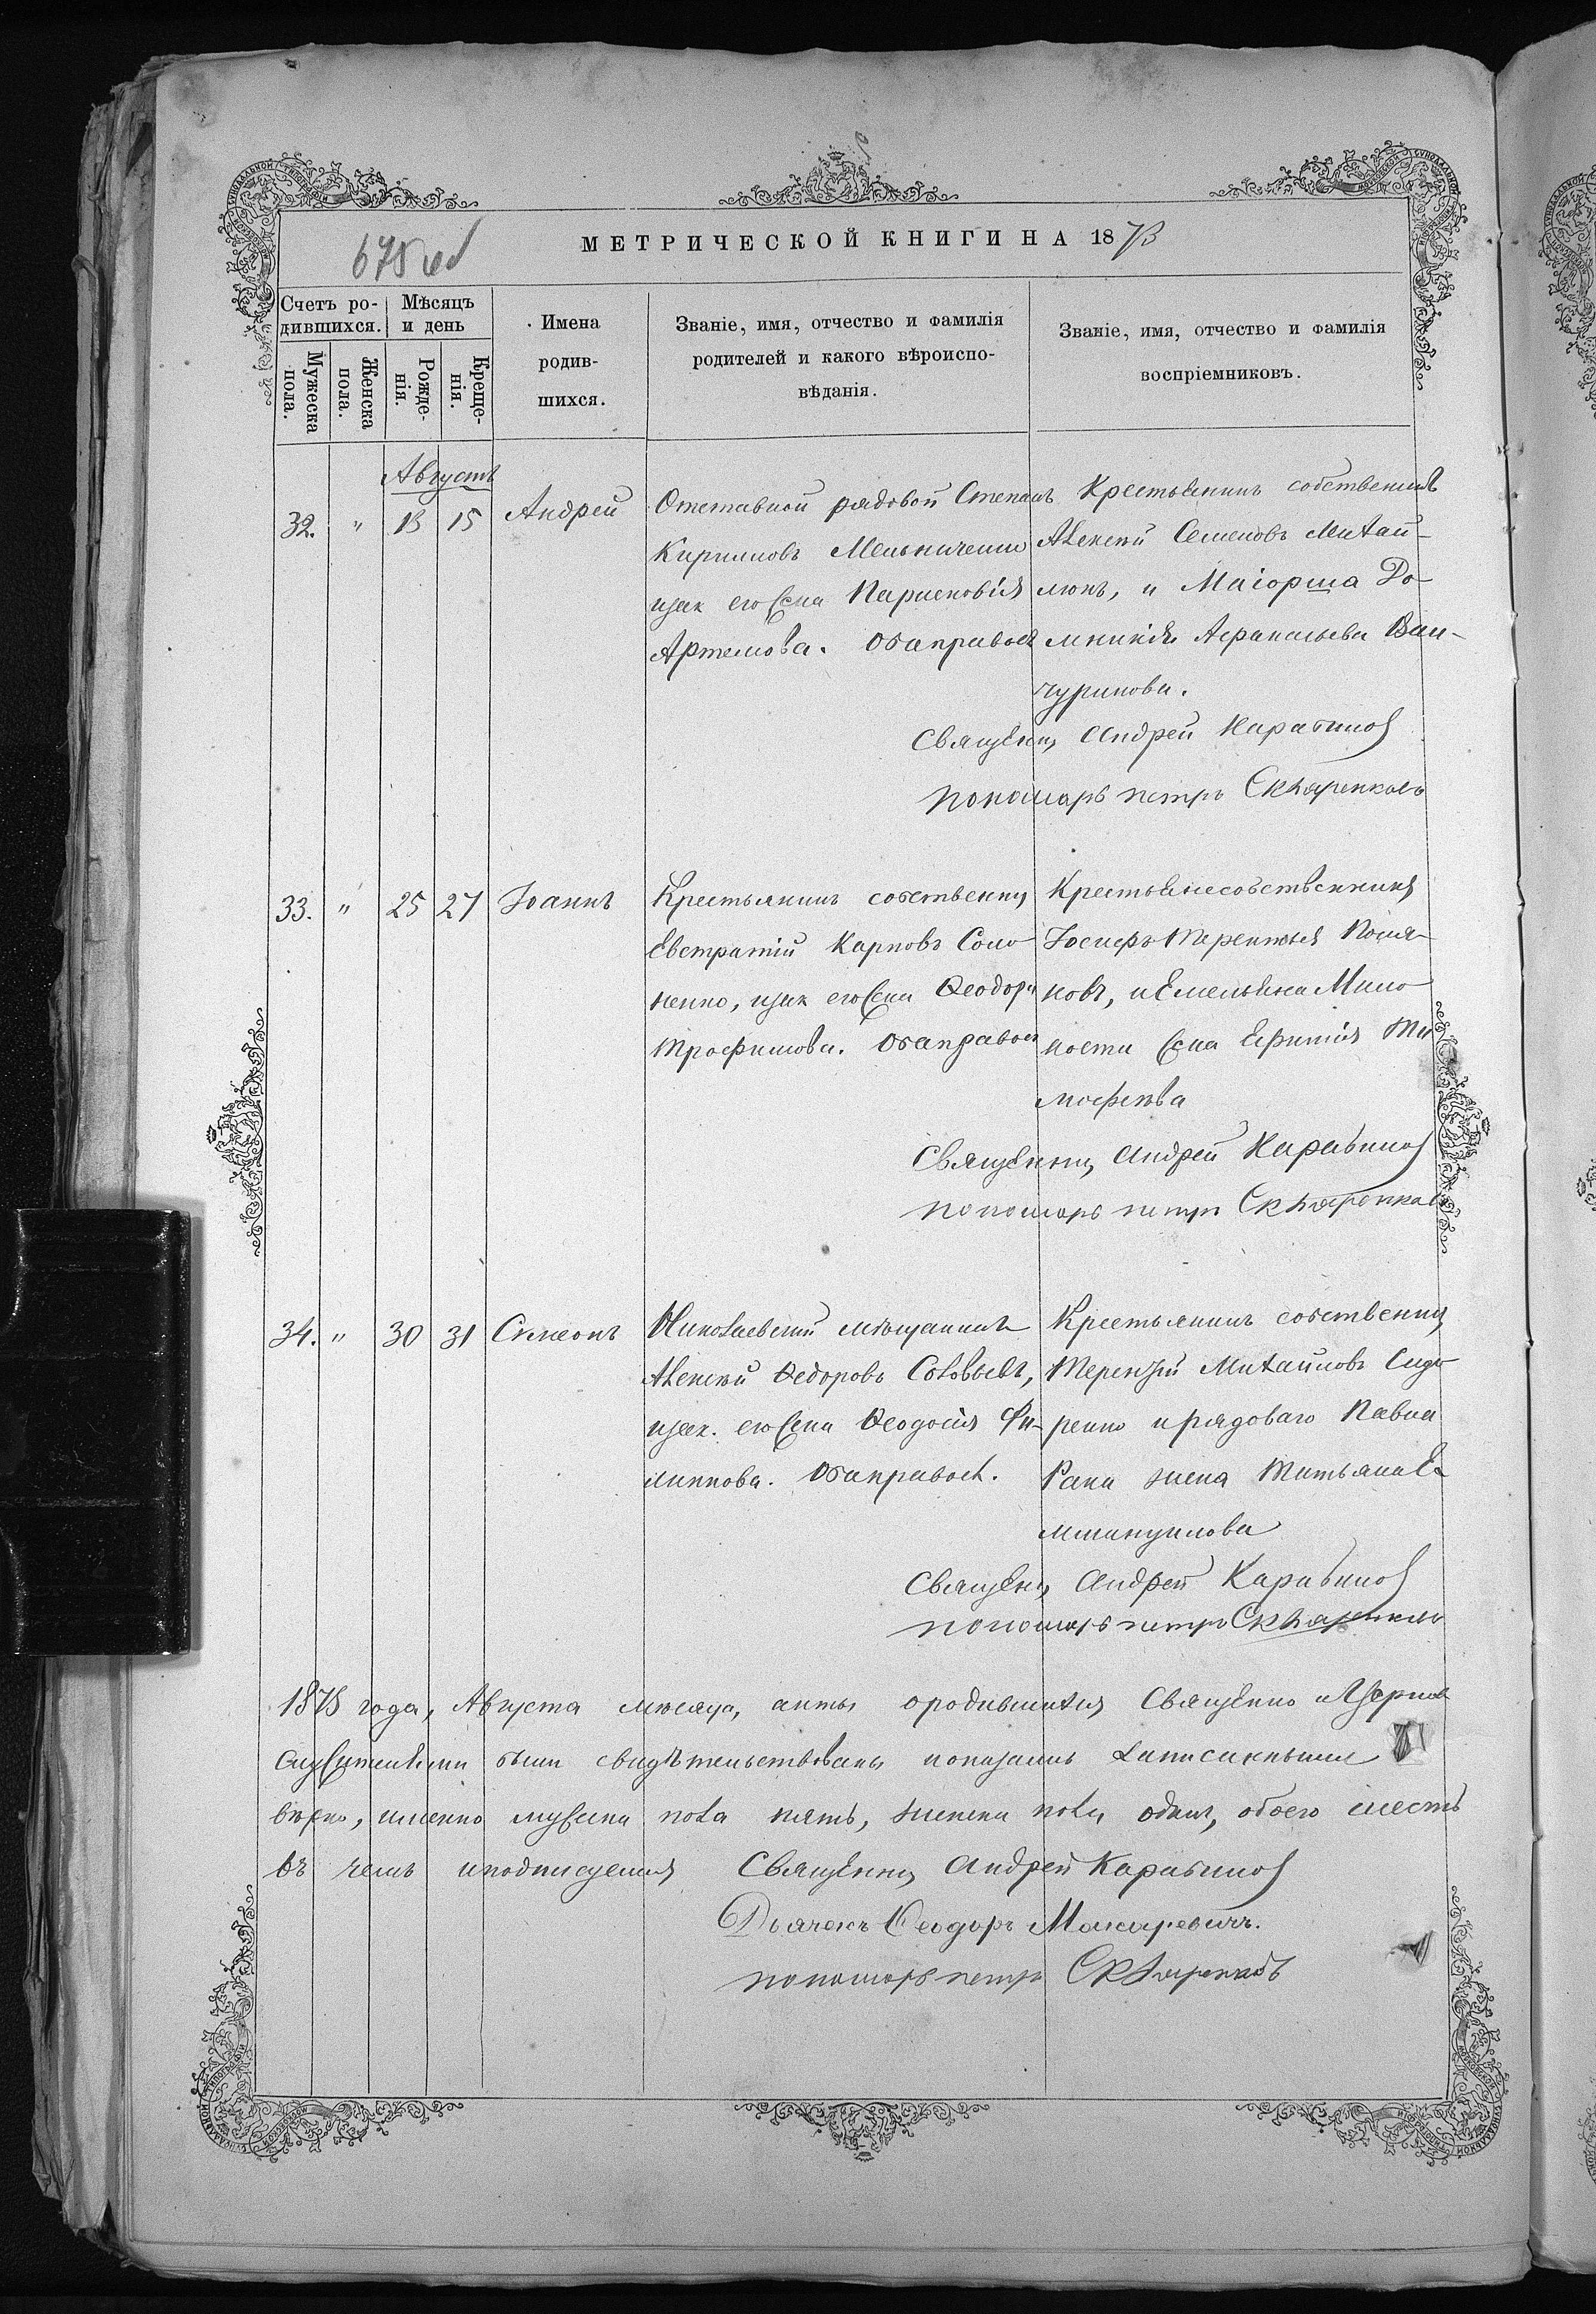 МЕТРИЧЕСКОЙ КНИГИ НА 1873
Счетъ ро-
дившихся.
Мѣсяцъ
и день
Мужеска
пола.
Женска
пола.
Рожде-
нія.
Креще-
нія.
Имена
родив-
шихся.
Званіе, имя, отчество и фамилія
родителей и какого вѣроиспо-
вѣданія.
Званіе, имя, отчество и фамилія
воспріемниковъ.
Августъ
32. " 13 15 Андрей
Отставной рядовой Степанъ
Кирилловъ Мельниченко
его жена Парасковія
Артемова. Оба правосл
Крестьянинъ собственникъ
Алексѣй Семеновъ Михай-
люкъ, и Маіорша До-
мникія Афанасьева Ван-
чуринова.
Священни Андрей Карабиновъ
пономарь петръ
33. " 25 27 Іоаннъ
Крестьянинъ собственни
Евстратій Карповъ Соло
ненко, зак его жена Ѳеодора
Трофимова. Оба правосл
Крестьяне собственники
Іосифъ Терентьев
новъ, и Емельяна
жена Ефимія Ти
мофеева
Священни Андрей Карабиновъ
пономарь петръ
34. " 30 31 Симеонъ
Николаевскій мѣщанинъ
Алексѣй Ѳедоровъ Соловьевъ,
зак. его жена Ѳеодосія Фи-
липпова. Оба правосл.
Крестьянинъ собственни
Терентій Михайловъ Сидо
ренко и рядоваго Павла
жена Татьяна Е-
ммануилова
Священ Андрей Карабиновъ
пономарь петръ
1873 года, Августа мѣсяца, акты о родившихся Священно и Церков
служителями были свидѣтельствованы и оказались записанными
вѣрно, именно мужска пола пять, женска пола одинъ, обоего шесть
въ чемъ и подписуемся Священни Андрей Карабиновъ
Дьячекъ Ѳеодоръ Макаревичъ.
пономарь петръ